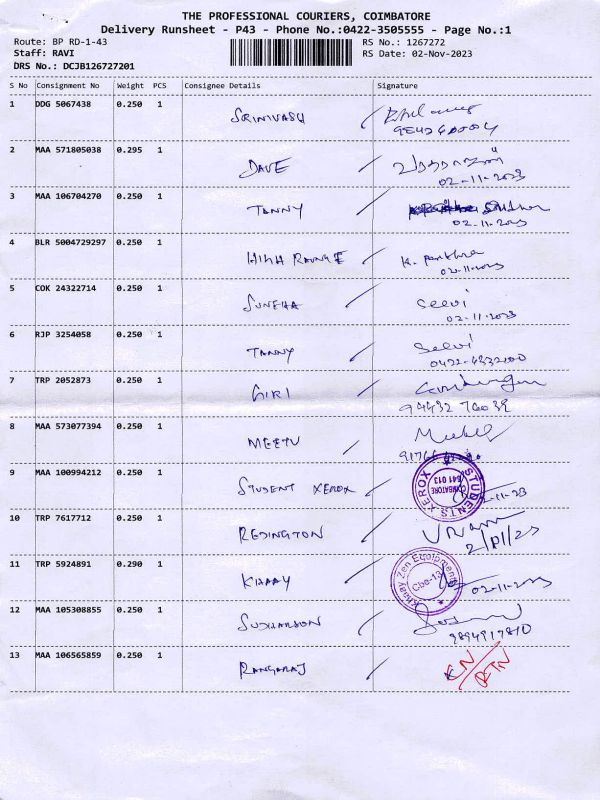 THE PROFESSIONAL COURIERS, COIMBATORE
Delivery Runsheet - P43 - Phone No.:0422-3505555 - Page No.:1
Route: BP RD-1-43 RS No.: 1267272
Staff: RAVI RS Date: 02-Nov-2023
DRS No.: DCJB126727201
S No Consignment No Weight PCS Consignee Details Signature
1 DDG 5067438 0.250 1 SRINIVASU
2 MAA 571805038 0.295 1 DAVE
02-11-2023
3 MAA 106704270 0.250 1 TANNY
02-11-2023
4 BLR 5004729297 0.250 1 HIGH RANGE
02-11-2023
5 COK 24322714 0.250 1 SUNEHA Selvi
02-11-2023
6 RJP 3254058 0.250 1 TANNY Selvi
0422-4332100
7 TRP 2052873 0.250 1 GIRI
94432 76039
8 MAA 573077394 0.250 1 MEETU
9 MAA 100994212 0.250 1 STUDENT XEROX
STUDENTS XEROX
COIMBATORE
641 013
10 TRP 7617712 0.250 1 REDINGTON
2/11/23
11 TRP 5924891 0.290 1 KHAAY
Khaay Zen Equipment
Cbe-13
02-11-2023
12 MAA 105308855 0.250 1 SUDHARSON
9894917810
13 MAA 106565859 0.250 1 RANGARAJ
RTN